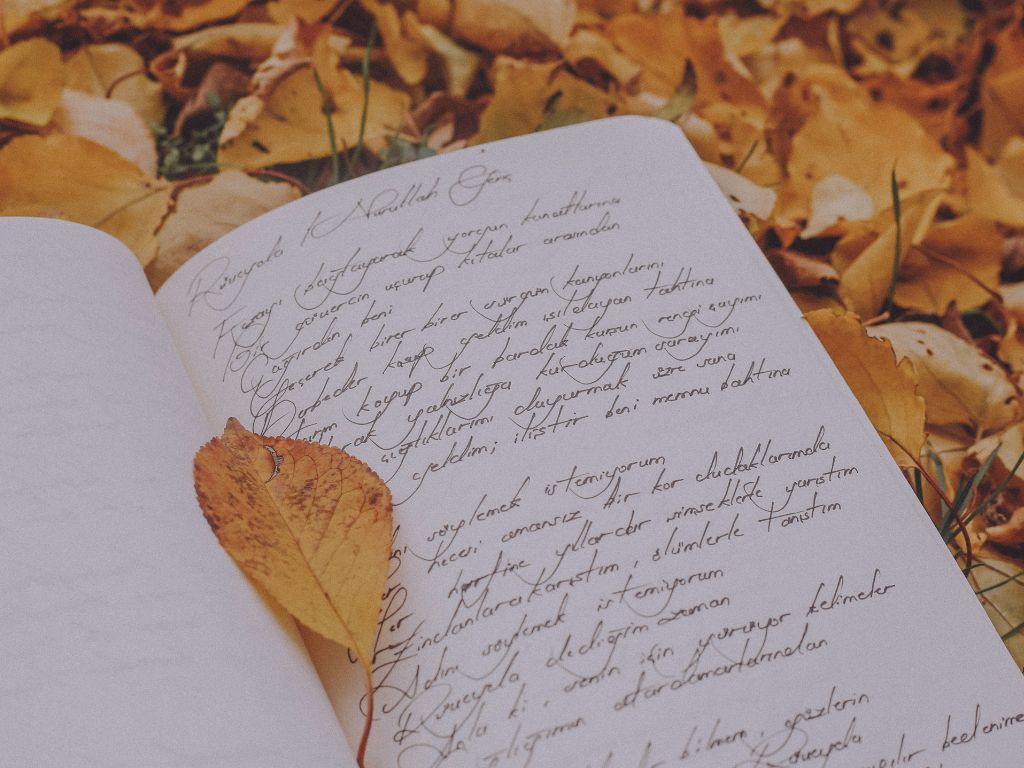 Rüveyda / Nurullah Genç
Feyzayı bağışlayarak yorgun kanatlarına
Bir güvercin uçurup kıtalar arasından
Çağırdın beni
Geçerek birer birer sürgün kanyonlarını
Derbeder koşup geldim ışıldayan tahtına
koyup bir bardak kurşun rengi çayımı
yalnızlığa kurduğum sarayımı
çığlıklarımı duyurmak üzre sana
geldim; iliştir beni memnu bahtına
söylemek istemiyorum
hecesi amansız bir kor dudaklarımda
yıllardır şimşeklerle yarıştım
Zindanlara karıştım, ölümlerle tanıştım
Adını söylemek istemiyorum
Rüveyda dediğim zaman
Anla ki, senin için yürüyor kelimeler
damarlarımdan
bilmem, gözlerin
Rüveyda